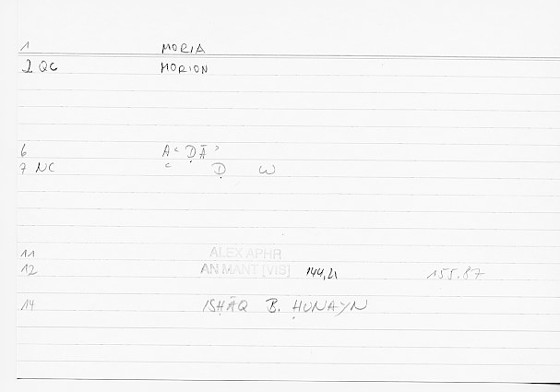 1 MORIA
2 QC MORION
6 Aʿḍāʾ
7 NC ʿ Ḍ W
11 ALEX APHR
12 AN MANT [VIS] 144,21 158.87
14 ISḤĀQ B. ḤUNAYN